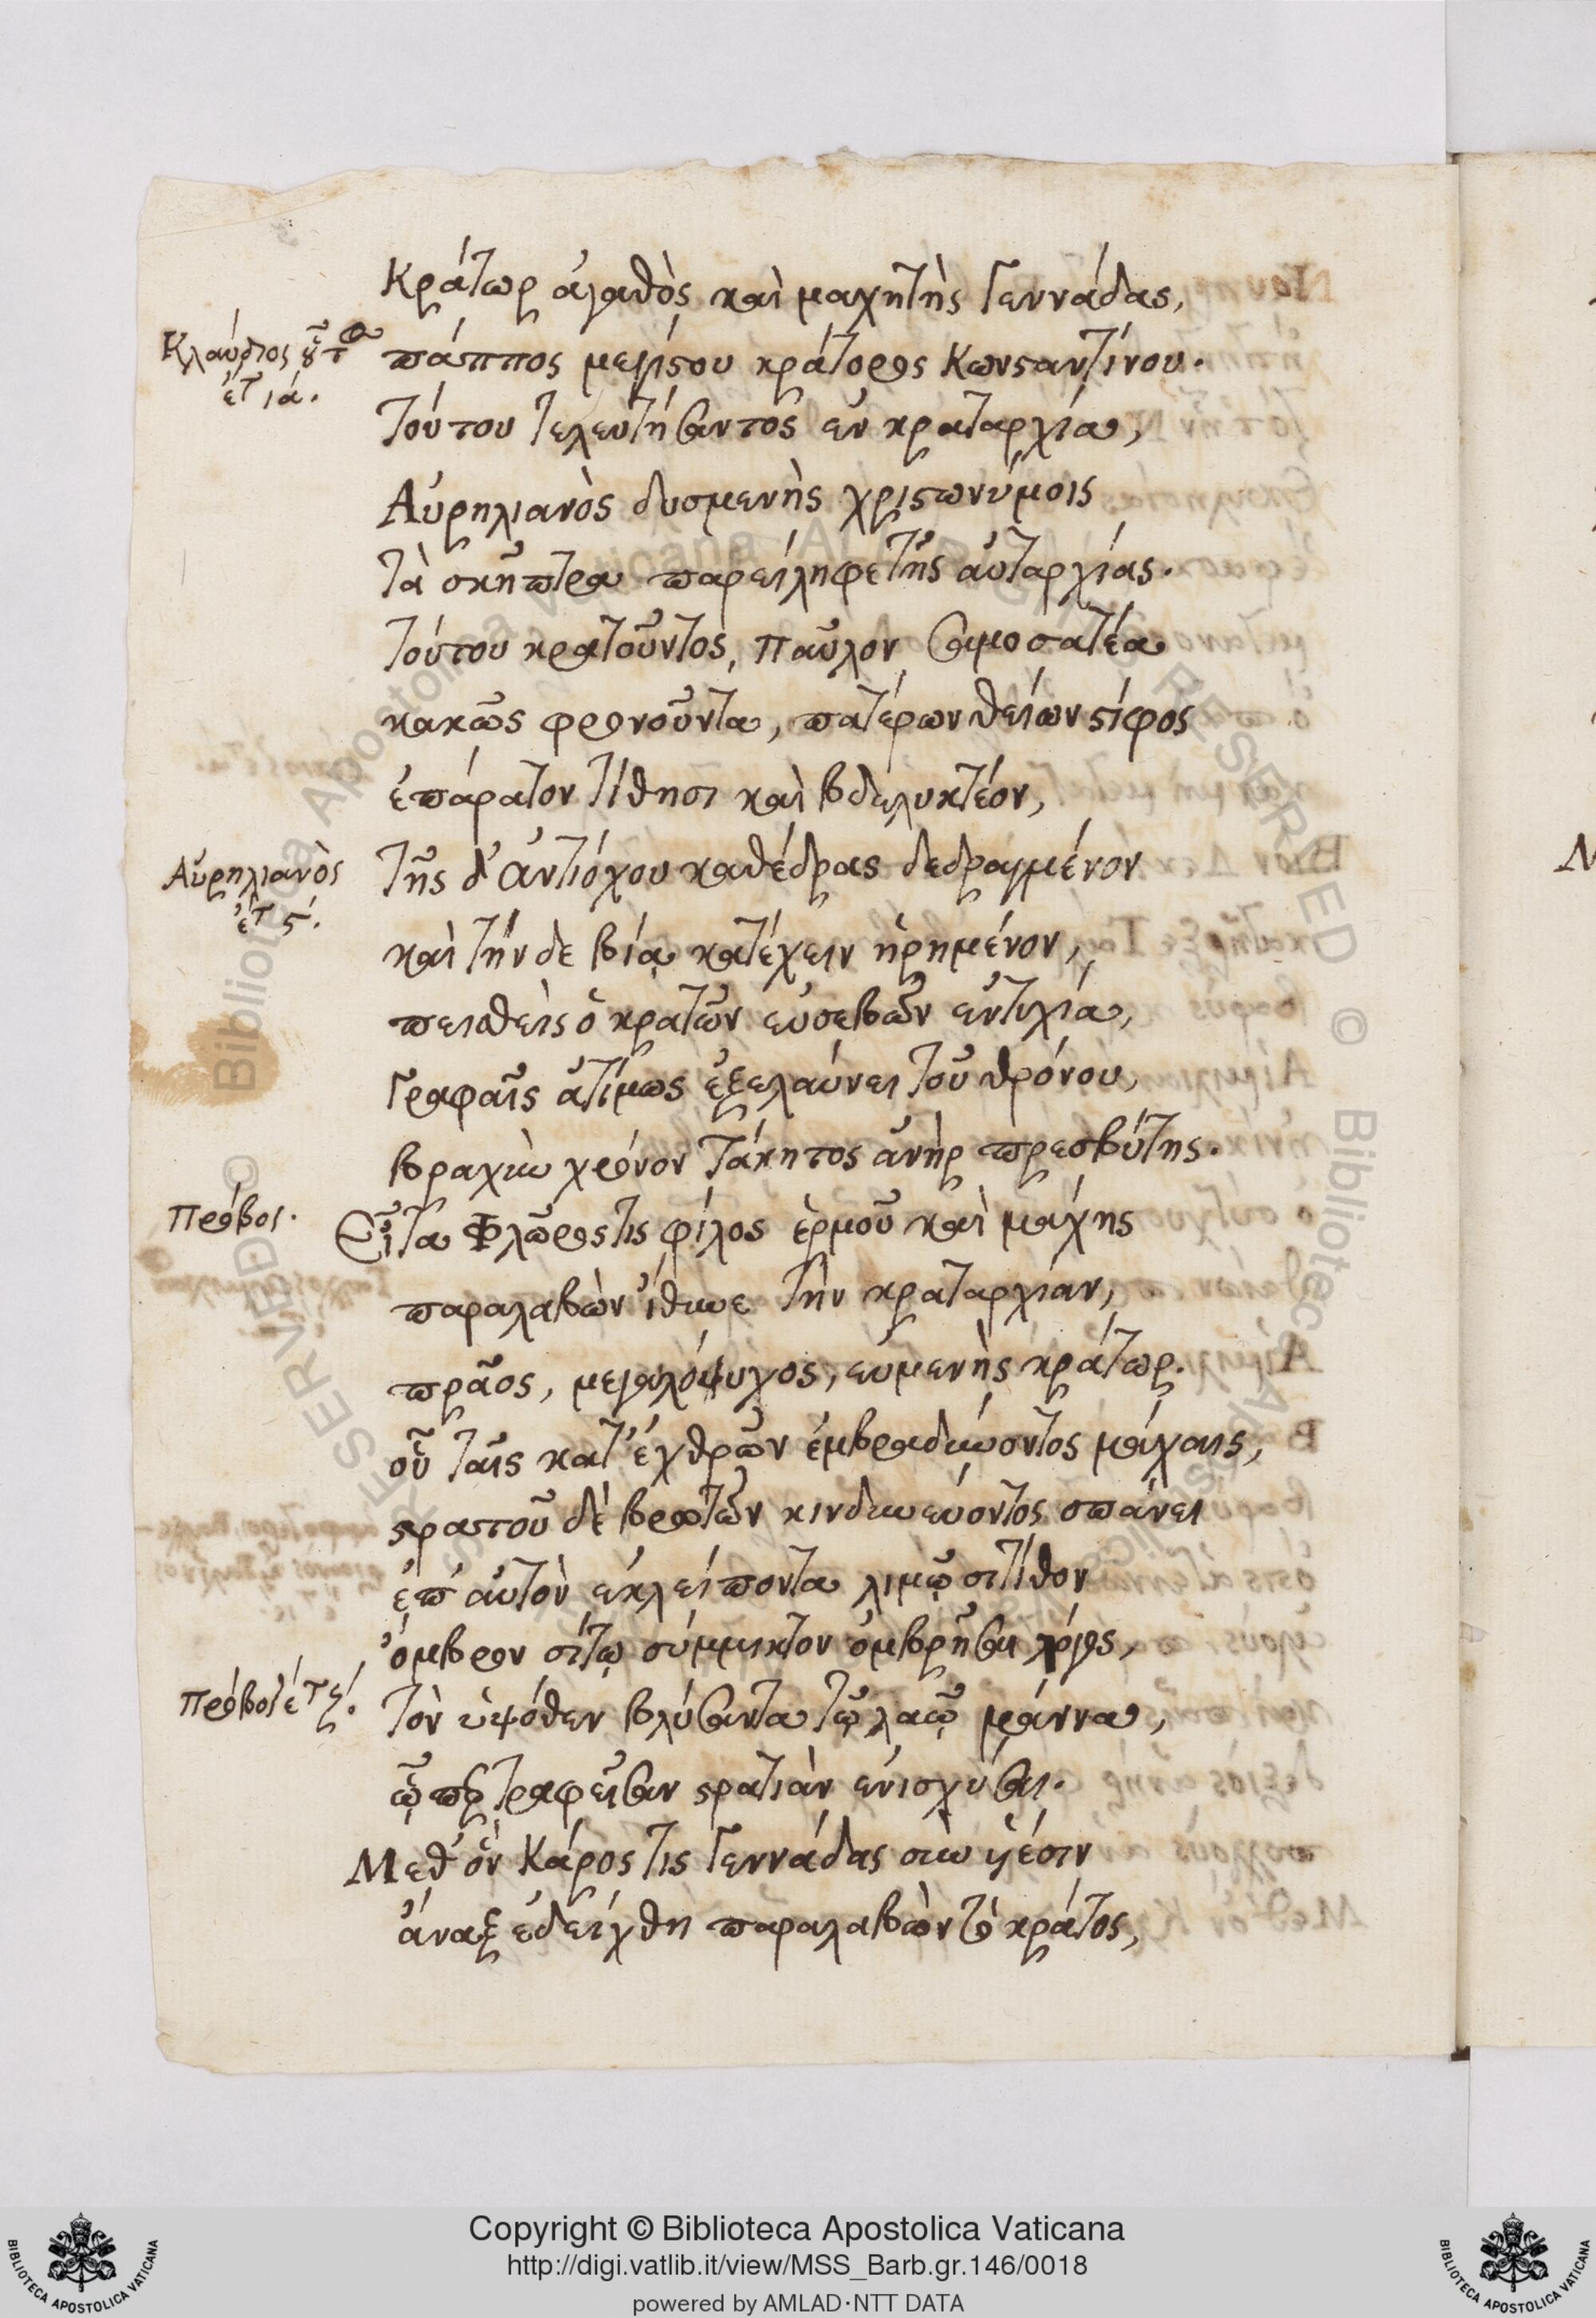 Κράτωρ ἀγαθὸς καὶ μαχητὴς γεννάδας,
Κλαύδιος
ἔτ ιά.
πάππος μεγίστου κράτορος Κωνσταντίνου.
τούτου τελευτήσαντος ἐν κραταρχία,
Αὐρηλιανὸς δυσμενὴς χριστωνύμοις
τὰ σκῆπτρα παρείληφε τῆς αὐταρχίας.
τούτου κρατοῦντος, παῦλον σαμοσατέα
κακῶς φρονοῦντα, πατέρων θείων στίφος
ἐπάρατον τίθησι καὶ βδελυκτέον,
Αὐρηλιανὸς
ἔτ ς.
τῆς δ' ἀντιόχου καθέδρας δεδραγμένον
καὶ τήν δε βίᾳ κατέχειν ἡρημένον,
πεισθεὶς ὁ κρατῶν εὐσεβῶν ἐντυχία,
γραφαῖς ἀτίμως ἐξελαύνει τοῦ θρόνου,
βραχὺν χρόνον τάκητος ἀνὴρ πρεσβύτης.
πρόβος.
Εἶτα Φλῶρος τις φίλος ἑρμοῦ καὶ μάχης
παραλαβὼν ἴθυνε τὴν κραταρχίαν,
πρᾶος, μεγαλόψυχος, εὐμενὴς κράτωρ.
οὗ ταῖς κατ' ἐχθρῶν ἐμβραδύνοντος μάχαις,
στρατοῦ δὲ βρωτῶν κινδυνεύοντος σπάνει
ἐπ' αὐτὸν ἐκλείποντα λιμῷ σιτίθον
ὄμβρον σίτῳ σύμμικτον ὀμβρῆσαι λόγος,
πρόβος ἔτ ς.
τὸν ὑψόθεν βλύσαντα τῷ λαῷ μάννα,
ᾧπερ τραφεῖσαν στρατιὰν ἐνισχύσαι.
Μεθ' ὃν Κάρος τις γεννάδας σὺν υἱέσιν
ἄναξ ἐδείχθη παραλαβὼν τὸ κράτος,
Copyright © Biblioteca Apostolica Vaticana
http://digi.vatlib.it/view/MSS_Barb.gr.146/0018
powered by AMLAD·NTT DATA